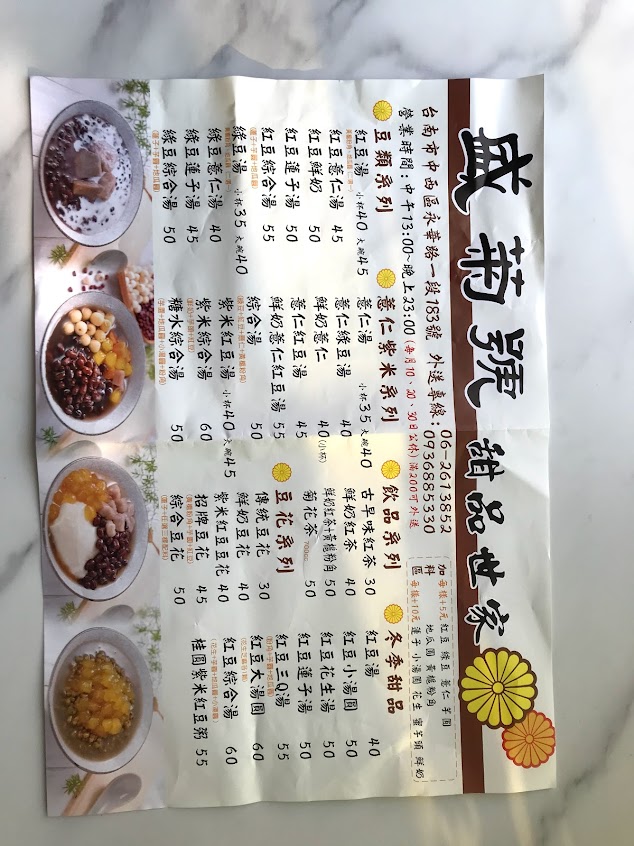 盛菊號 甜品世家
台南市中西區永華路一段183號 外送專線:06-2613852
0936885330
營業時間:中午13:00~晚上23:00(每月10、20、30日公休)滿200可外送
加料區
每樣+5元 紅豆 綠豆 薏仁 芋圓
地瓜圓 黃槴粉角
每樣+10元 蓮子 小湯圓 花生 蜜芋頭 鮮奶
豆類系列
紅豆湯 小杯40 大碗45
紅豆薏仁湯 45
紅豆鮮奶 50
紅豆蓮子湯 50
紅豆綜合湯 55
(蓮子+芋圓+地瓜圓)
綠豆湯 小杯35 大碗40
綠豆薏仁湯 40
綠豆蓮子湯 45
綠豆綜合湯 50
(蓮子+芋圓+地瓜圓)
薏仁紫米系列
薏仁湯 小杯35 大碗40
薏仁綠豆湯 40
鮮奶薏仁 40(小杯)
薏仁紅豆湯 45
鮮奶薏仁紅豆湯 55
綜合湯 50
紫米紅豆湯 小杯40 大碗45
紫米綜合湯 60
(鮮奶+芋圓+紅豆)
糖水綜合湯 50
(芋圓+地瓜圓+小湯圓+粉角)
飲品系列
古早味紅茶 30
鮮奶紅茶 40
鮮奶紅茶+黃槴粉角 50
菊花茶 700cc 30
豆花系列
傳統豆花 30
鮮奶豆花 40
紫米紅豆豆花 40
招牌豆花 45
(黃槴粉角+芋圓+紅豆)
綜合豆花 50
(蓮子+任選三樣配料)
冬季甜品
紅豆湯 40
紅豆小湯圓 50
紅豆花生湯 50
紅豆蓮子湯 50
紅豆三Q湯 55
(粉角+芋圓+地瓜圓)
紅豆大湯圓 60
紅豆綜合湯 60
(花生+芋圓+地瓜圓+小湯圓)
桂圓紫米紅豆粥 55